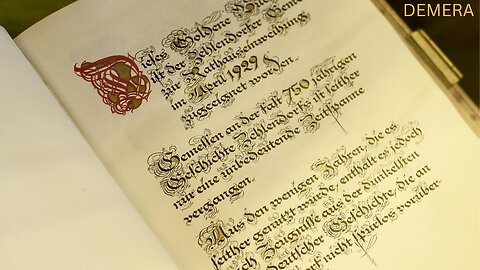 DEMERA
Dieses Goldene
ist der Zehlendorfer
zur Rathauseinweihung
im April 1929
zugeeignet worden.
Gemessen an der fast 750 jährigen
Geschichte Zehlendorfs ist seither
nur eine unbedeutende Zeitspanne
vergangen.
Aus den wenigen Jahren, die es
seither genutzt wurde, enthält es jedoch
auch Zeugnisse aus der dunkelsten
deutscher Geschichte, die an
nicht spurlos vorüber